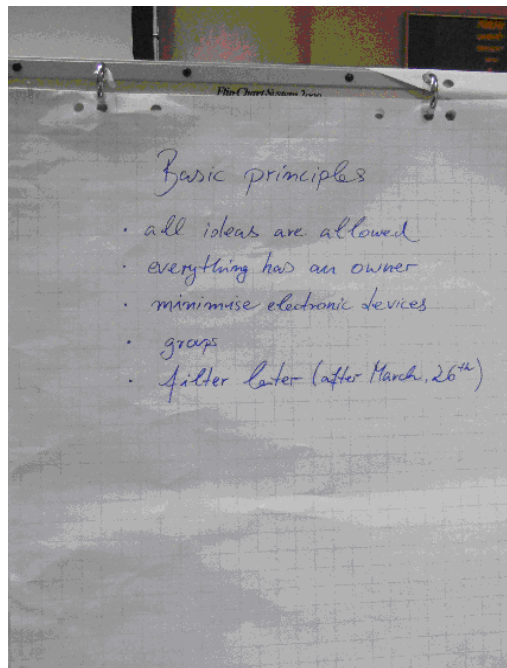 Flip Chart System 2000
Basic principles
· all ideas are allowed
· everything has an owner
· minimise electronic devices
· groups
· filter later (after March, 26th)